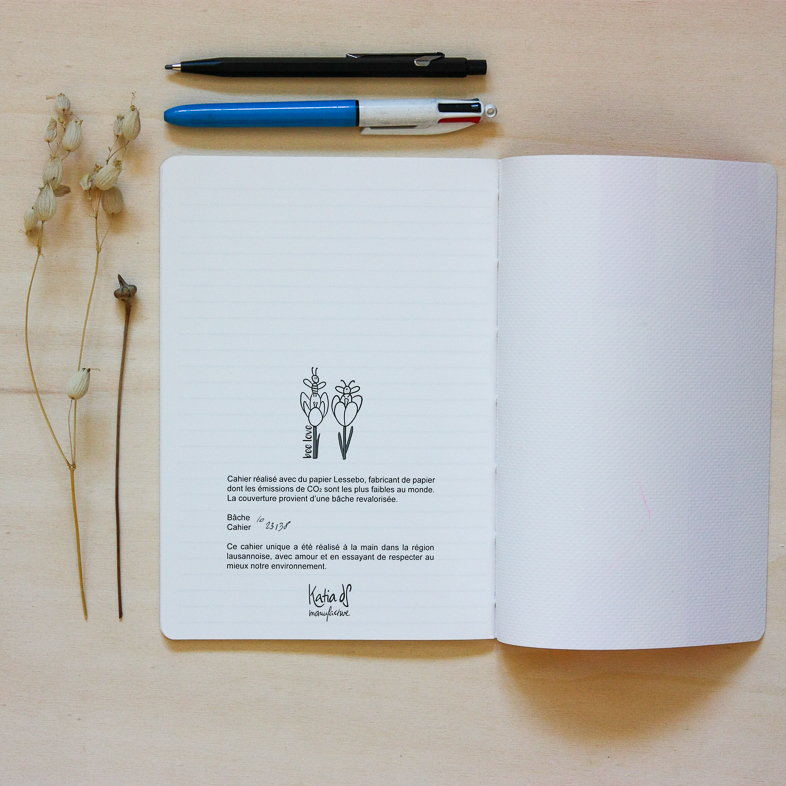 bee love
Cahier réalisé avec du papier Lessebo, fabricant de papier
dont les émissions de CO₂ sont les plus faibles au monde.
La couverture provient d'une bâche revalorisée.
Bâche 10
Cahier 23138
Ce cahier unique a été réalisé à la main dans la région
lausannoise, avec amour et en essayant de respecter au
mieux notre environnement.
Katia dS
manufacture